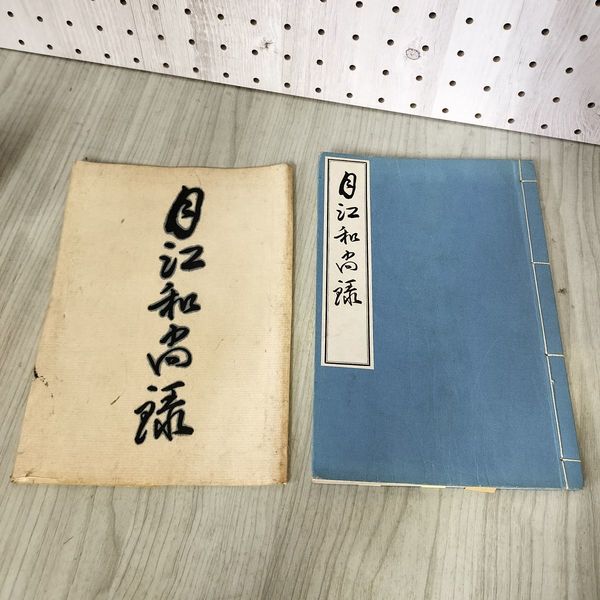 月江和尚録
月江和尚録